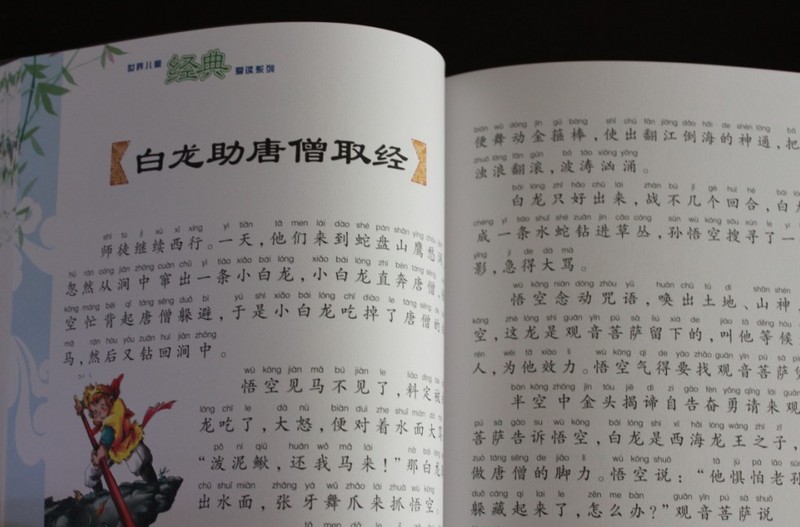 世界儿童 经典 爱读系列
白龙助唐僧取经
shī tú jì xù xī xíng yì tiān tā men lái dào shé pán shān yīng chóu
师徒继续西行。一天，他们来到蛇盘山鹰愁
hū rán cóng jiàn zhōng cuān chū yì tiáo xiǎo bái lóng xiǎo bái lóng zhí bèn táng sēng
忽然从涧中窜出一条小白龙，小白龙直奔唐僧，
kōng máng bēi qǐ táng sēng duǒ bì yú shì xiǎo bái lóng chī diào le táng sēng de
空忙背起唐僧躲避，于是小白龙吃掉了唐僧的
mǎ rán hòu yòu zuān huí jiàn zhōng
马，然后又钻回涧中。
wù kōng jiàn mǎ bú jiàn le liào dìng
悟空见马不见了，料定被
lóng chī le dà nù biàn duì zhe shuǐ miàn dà
龙吃了，大怒，便对着水面大骂
pō ní qiū huán wǒ mǎ lái nà bái
“泼泥鳅，还我马来！”那白龙
出水面，张牙舞爪来抓悟空。
biàn wǔ dòng jīn gū bàng shǐ chū fān jiāng dǎo hǎi de shén tōng bǎ
便舞动金箍棒，使出翻江倒海的神通，把
zhuó làng fān gǔn bō tāo xiōng yǒng
浊浪翻滚，波涛汹涌。
bái lóng zhǐ hǎo chū lái zhàn bù jǐ gè huí hé bái
白龙只好出来，战不几个回合，白龙
chéng yì tiáo shuǐ shé zuān jìn cǎo cóng sūn wù kōng sōu xún le yí
成一条水蛇钻进草丛，孙悟空搜寻了一
yǐng jí de dà mà
影，急得大骂。
wù kōng niàn dòng zhòu yǔ huàn chū tǔ dì shān shén
悟空念动咒语，唤出土地、山神，
kōng zhè lóng shì guān yīn pú sà liú xià de jiào tā děng hòu
空，这龙是观音菩萨留下的，叫他等候
rén wèi tā xiào lì wù kōng qì de yào zhǎo guān yīn pú sà
人，为他效力。悟空气得要找观音菩萨
bàn kōng zhōng jīn tóu jiē dì zì gào fèn yǒng qǐng lái guān
半空中金头揭谛自告奋勇请来观
pú sà gào su wù kōng bái lóng shì xī hǎi lóng wáng zhī zǐ
菩萨告诉悟空，白龙是西海龙王之子，
zuò táng sēng de jiǎo lì wù kōng shuō tā jù pà lǎo sūn
做唐僧的脚力。悟空说：“他惧怕老孙
duǒ cáng qǐ lái le zěn me bàn guān yīn pú sà shuō
躲藏起来了，怎么办？”观音菩萨说